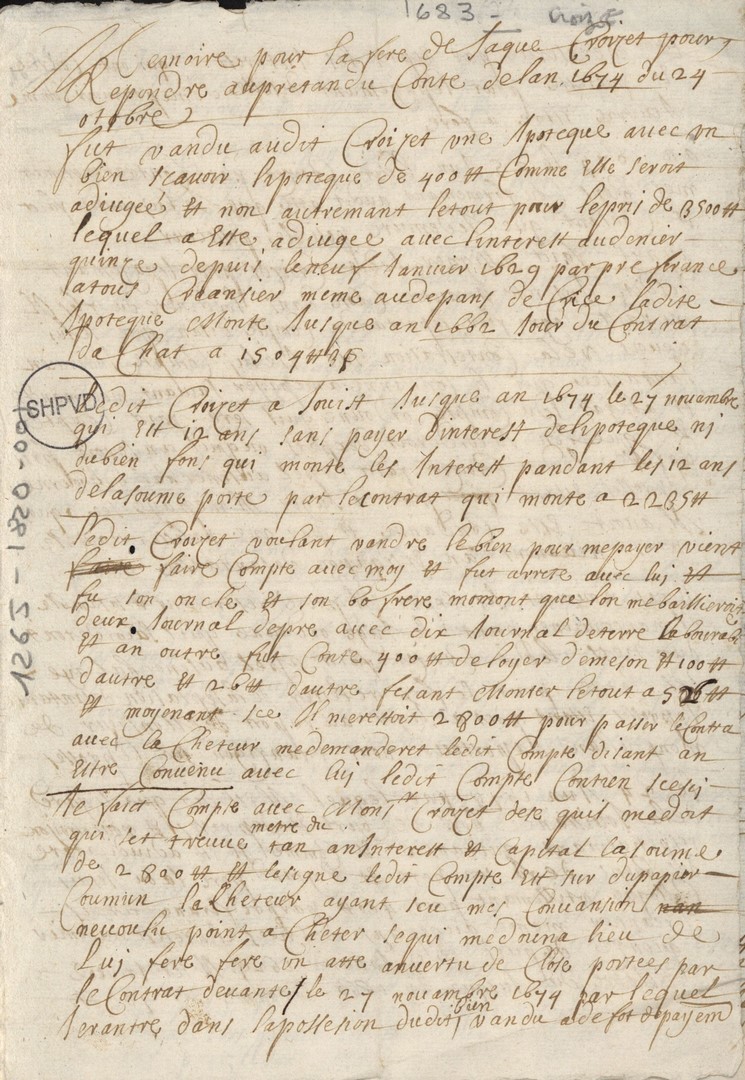 1683 - Croizet
Memoire pour la fere de Jaque Croizet pour
Repondre aupretandu Conte delan 1674 du 24
otobre
fut vandu audit Croizet une Ipoteque avec un
bien scavoir lipoteque de 400tt Comme Elle seroit
adiugeé et non autremant letout pour lepris de 3500tt
lequel a Este adiugee avec linterest audenier
quinze depuis leneuf Ianvier 1629 par preferance
atous Creansier meme audepans de ladite
Ipoteque Monte Iusque an 1662 Iour du Contrat
da Chat a 1504tt
SHPVD
Ledit Croizet a Iouist Iusque an 1674 le 27 novambre
qui Est 12 ans sans payer dinterest delipoteque ni
dubien fons qui monte les Interest pandant les 12 ans
delasoume porte par lecontrat qui monte a 2235tt
ledit Croizet voulant vandre lebien pour mepayer vient
faire Compte avec moy et fut arrete avec lui et
fu son oncle et son bofrere momont que lon mebaillieroit
deux Iournal depre avec dix Iournal deterre labourable
et an outre fut Conte 400tt deloyer demeson et 100tt
dautre et 26tt dautre fesant Monter letout a 526tt
et moyenant se Il merestoit 2800tt pour passer leContra
avec lacheteur medemanderet ledit Compte disant an
Estre Convenu avec lui ledit Compte Contien scesi
Ie faict Compte avec Monsr Croizet dese quis medoit
qui set treuve metre du tan anInterest et Capital lasoume
de 2800tt et lesigne ledit Compte Est sur dupapier
Coumun laCheteur ayant seu mes Convansion
nevoulu point aCheter sequi medonna lieu de
Lui fere fere un atte anvertu de Close portees par
leContrat devante le 27 novambre 1674 par lequel
Ierantre dans lapossesion dudit bien vandu adefot de payem
1265-1820-001